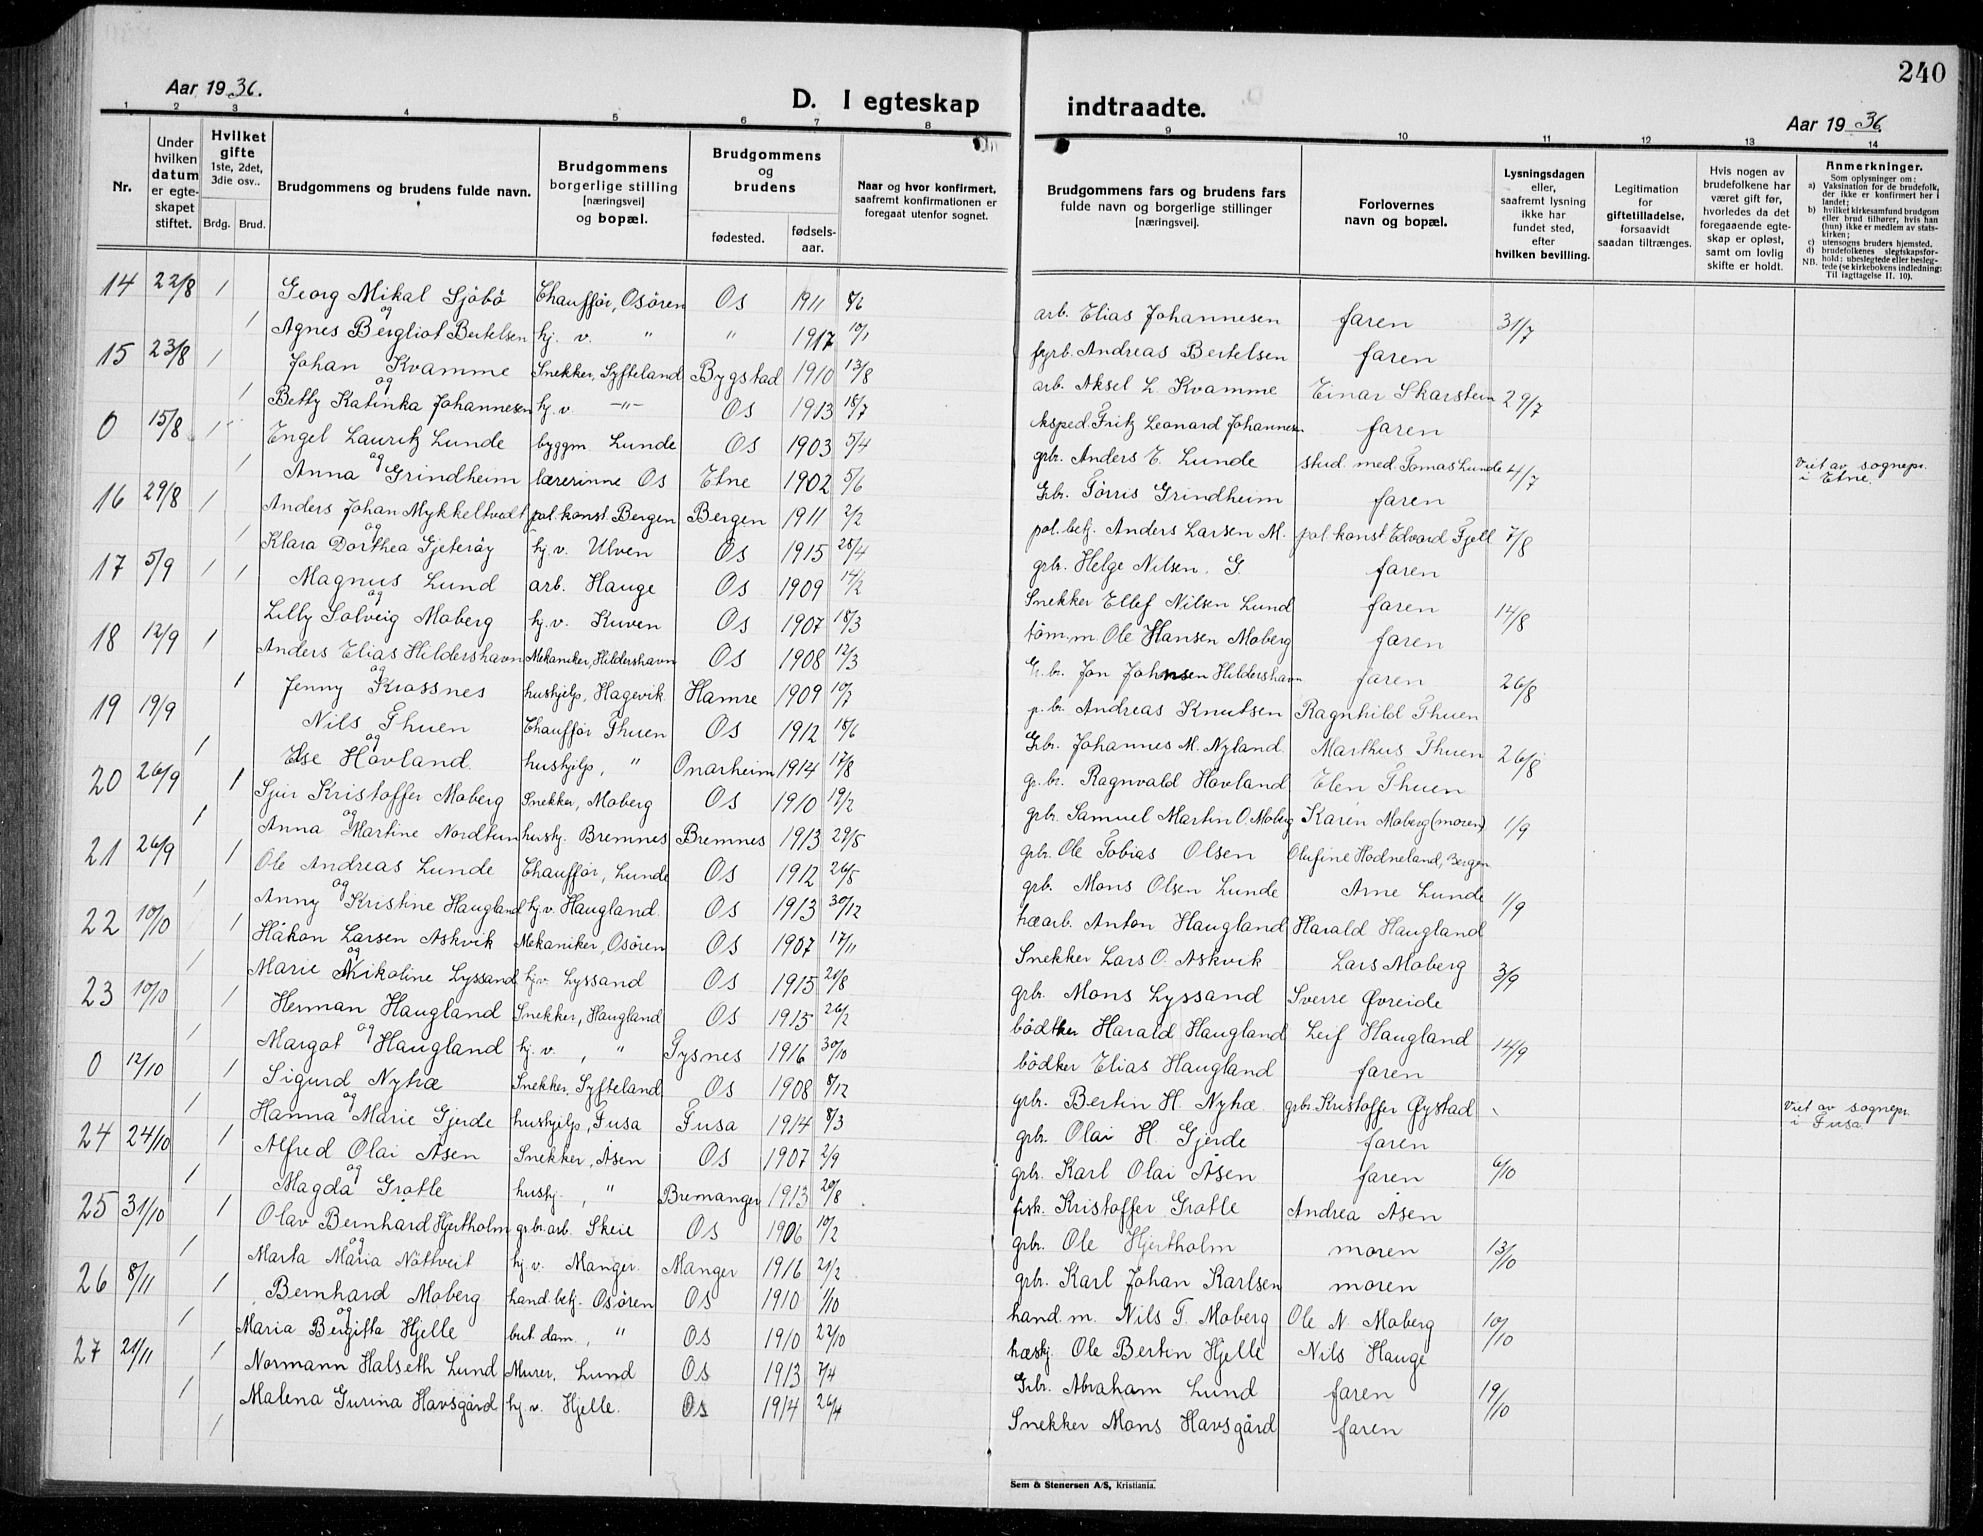 240
Aar 1936.
D. I egteskap indtraadte.
Aar 1936
1 2 3 4 5 6 7 8 9 10 11 12 13 14
Nr.
Under hvilken datum er egteskapet stiftet.
Hvilket gifte 1ste, 2det, 3die osv..
Brdg. Brud.
Brudgommens og brudens fulde navn.
Brudgommens borgerlige stilling [næringsvei] og bopæl.
Brudgommens og brudens
fødested. fødselsaar.
Naar og hvor konfirmert, saafremt konfirmationen er foregaat utenfor sognet.
Brudgommens fars og brudens fars fulde navn og borgerlige stillinger [næringsvei].
Forlovernes navn og bopæl.
Lysningsdagen eller, saafremt lysning ikke har fundet sted, efter hvilken bevilling.
Legitimation for giftetilladelse, forsaavidt saadan tiltrænges.
Hvis nogen av brudefolkene har været gift før, hvorledes da det foregaaende egteskap er opløst, samt om lovlig skifte er holdt.
Anmerkninger.
Som oplysninger om:
a) Vaksination for de brudefolk, der ikke er konfirmert her i landet;
b) hvilket kirkesamfund brudgom eller brud tilhører, hvis han (hun) ikke er medlem av statskirken;
c) utensogns bruders hjemsted.
d) brudefolkenes slegtskapsforhold: ubeslegtede eller beslegtede (se kirkebokens indledning:
NB. Til iagttagelse II. 10).
14 22/8 1 Georg Mikal Sjöbö Chauffør, Osören Os 1911 8/6 arb. Elias Johannesen faren 31/7
og
1 Agnes Bergliot Bertelsen hj. v. " " 1917 10/1 fyrb. Andreas Bertelsen faren
15 23/8 1 Johan Kvamme Snekker, Syfteland Bygstad 1910 13/8 arb. Aksel L. Kvamme Einar Skarstein 29/7
og
1 Betty Katinka Johannesen hj. v. -"- Os 1913 18/7 eksped. Fritz Leonard Johannesen faren
0 15/8 1 Engel Lauritz Lunde byggm. Lunde Os 1903 5/4 grb. Anders E. Lunde stud. med. Tomas Lunde 4/7 Viet av sognepr. i Etne.
og
1 Anna Grindheim lærerinne Os Etne 1902 5/6 Grb. Törris Grindheim faren
16 29/8 1 Anders Johan Mykkeltvedt pol. konst. Bergen Bergen 1911 2/2 pol. betj. Anders Larsen M. pol. konst Edvard Fjell 7/8
og
1 Klara Dorthea Gjeteröy hj. v. Ulven Os 1915 25/4 grb. Helge Nilsen. G. faren
17 5/9 1 1 Magnus Lund arb. Hauge Os 1909 14/2 Snekker Ellef Nilsen Lund faren 14/8
og
Lilly Solveig Moberg hj. v. Kuven Os 1907 18/3 töm. m. Ole Hansen Moberg faren
18 12/9 1 Anders Elias Hildershavn Mekaniker, Hildershavn Os 1908 12/3 G. br. Jon Johnsen Hildershavn faren 26/8
og
1 Jenny Krossnes hushjelp, Hagevik Hamre 1909 10/7 g. br. Andreas Knutsen Ragnhild Thuen
19 19/9 Nils Thuen Chauffør Thuen Os 1912 18/6 Grb. Johannes M. Nyland. Marthus Thuen 26/8
og
1 Else Hovland. hushjelp, " Onarheim 1914 17/8 gr. br. Ragnvald Hovland Elen Thuen
20 26/9 1 Sjur Kristoffer Moberg Snekker, Moberg Os 1910 19/2 grb. Samuel Martin O. Moberg Karen Moberg (moren) 1/9
og
1 Anna Martine Nordtun hushj. Bremnes Bremnes 1913 29/5 grb. Ole Tobias Olsen Olufine Hodneland, Bergen
21 26/9 1 Ole Andreas Lunde Chauffør, Lunde Os 1912 26/5 grb. Mons Olsen Lunde Arne Lunde 1/9
og
1 Anny Kristine Haugland hj. v. Haugland. Os 1913 30/12 hæarb. Anton Haugland Harald Haugland
22 10/10 1 Håkon Larsen Askvik Mekaniker, Osören Os 1907 17/11 Snekker Lars O. Askvik Lars Moberg 3/9
og
1 Marie Nikoline Lyssand hj. v. Lyssand Os 1915 21/8 grb. Mons Lyssand Sverre Øvreide
23 10/10 1 Herman Haugland Snekker, Haugland Os 1915 26/2 bödtker Harald Haugland Leif Haugland 14/9
og
1 Margot Haugland hj. v. , " Tysnes 1916 30/10 bödker Elias Haugland faren
0 12/10 1 Sigurd Nyhæ Snekker, Syfteland Os 1908 8/12 grb. Bertin H. Nyhæ. grb. Kristoffer Øystad Viet av sognepr. i Fusa.
og
1 Hanna Marie Gjerde hushjelp, Fusa Fusa 1914 8/3 grb. Olai H. Gjerde faren
24 24/10 1 Alfred Olai Åsen Snekker, Åsen Os 1907 2/9 grb. Karl Olai Åsen faren 6/10
og
1 Magda Grotle hushj. , " Bremanger 1913 20/8 fisk. Kristoffer Grotle Andrea Åsen
25 31/10 1 Olav Bernhard Hjertholm grbr. arb. Skeie Os 1906 10/2 grb. Ole Hjertholm moren 13/10
og
1 Marta Maria Nöttveit hj. v. Manger. Manger 1916 21/2 grbr. Karl Johan Karlsen moren
26 8/11 1 Bernhard Moberg hand. betj. Osören Os 1910 1/10 hand. m. Nils T. Moberg Ole N. Moberg 10/10
og
1 Maria Bergitta Hjelle but. dam. , " Os 1910 22/10 hæskj. Ole Bertin Hjelle Nils Hauge
27 21/11 1 Normann Halseth Lund Murer, Lund Os 1913 7/4 Grbr. Abraham Lund faren 19/10
1 Malena Gurina Havsgård hj. v. Hjelle. Os 1914 26/4 Snekker Mons Havsgård faren
Sem & Stenersen A/S, Kristiania.